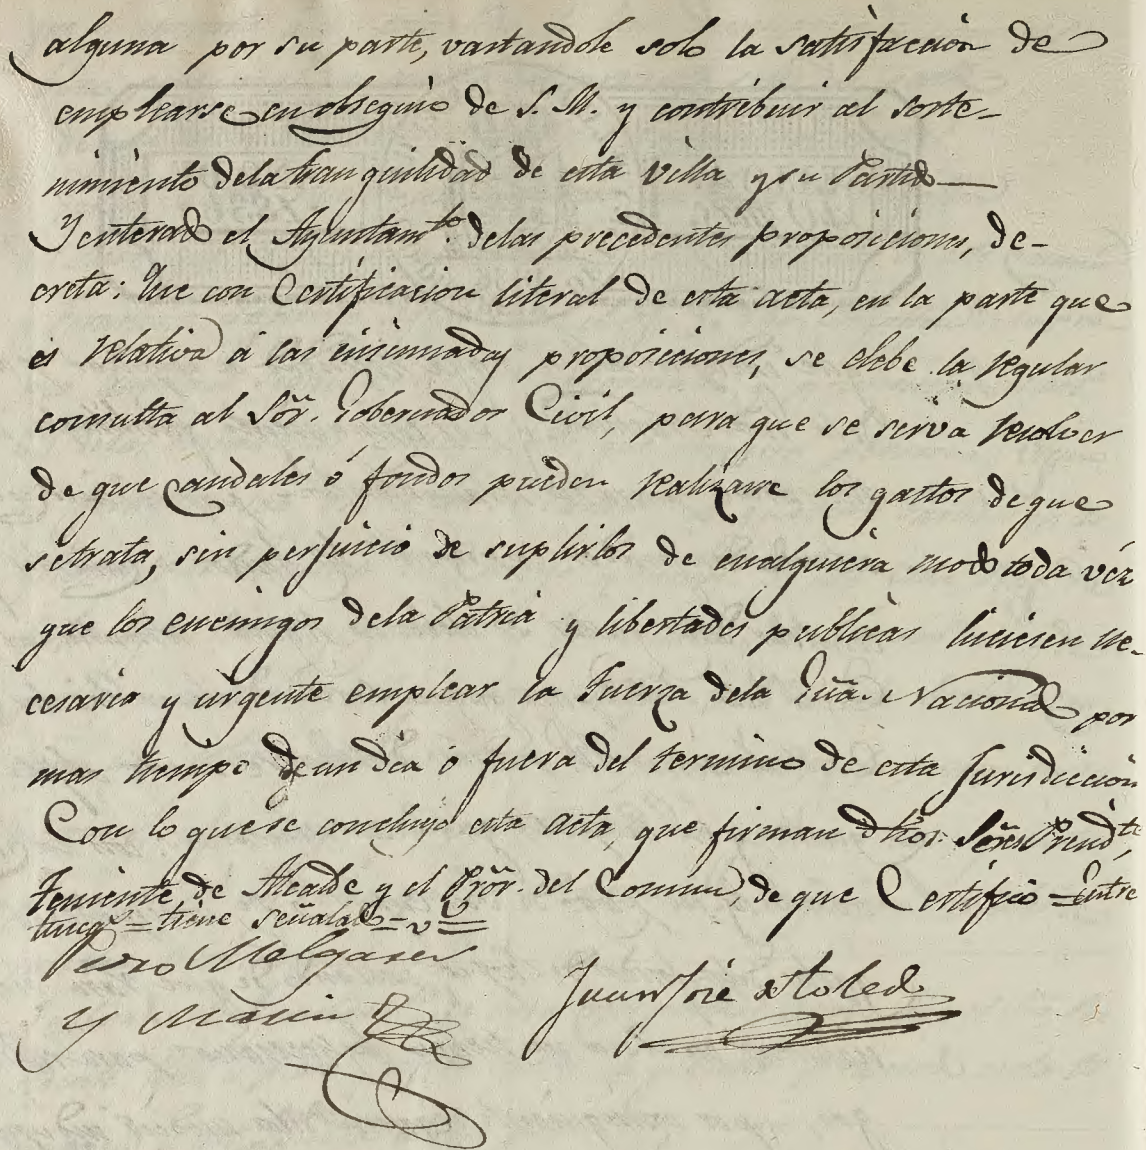 alguna por su parte, vastandole solo la satisfaccion de
emplearse en obsequio de S. M. y contribuir al soste-
nimiento dela tranquilidad de esta villa y su Partido
Y enterado el Ayuntamto. delas precedentes proposiciones, de-
creta: Que con Certificacion literal de esta acta, en la parte que
es relativa á las insinuadas proposiciones, se eleve la regular
consulta al Sōr. Gobernador Civil, para que se serva resolver
de que caudales ó fondos pueden realizarse los gastos de que
setrata, sin perjuicio de suplirlos de cualquiera modo toda véz
que los enemigos dela Patria y libertades publicas hiciesen ne-
cesario y urgente emplear la Fuerza dela Guā. Nacional por
mas tiempo de un dia ó fuera del termino de esta Jurisdiccion
Con lo que se concluyó esta acta, que firman dhos. Señores Presidte.
Teniente, de Alcalde y el Prōr. del Comun, de que Certifico = Entre
= tiene señalado = v
Pedro Melgarer
y Marin
Juan José Toledo